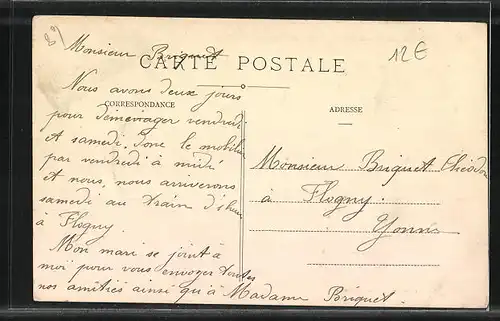 89
12€
Monsieur Briquet
CARTE POSTALE
CORRESPONDANCE
Nous avons deux jours
pour démenager vendredi
et samedi. Donc le mobilier
par vendredi à midi
et nous, nous arriverons
samedi au train d'
à Flogny.
Mon mari se joint à
moi pour vous envoyer toutes
nos amitiés ainsi qu'à Madame Briquet.
ADRESSE
Monsieur Briquet
à Flogny.
Yonne